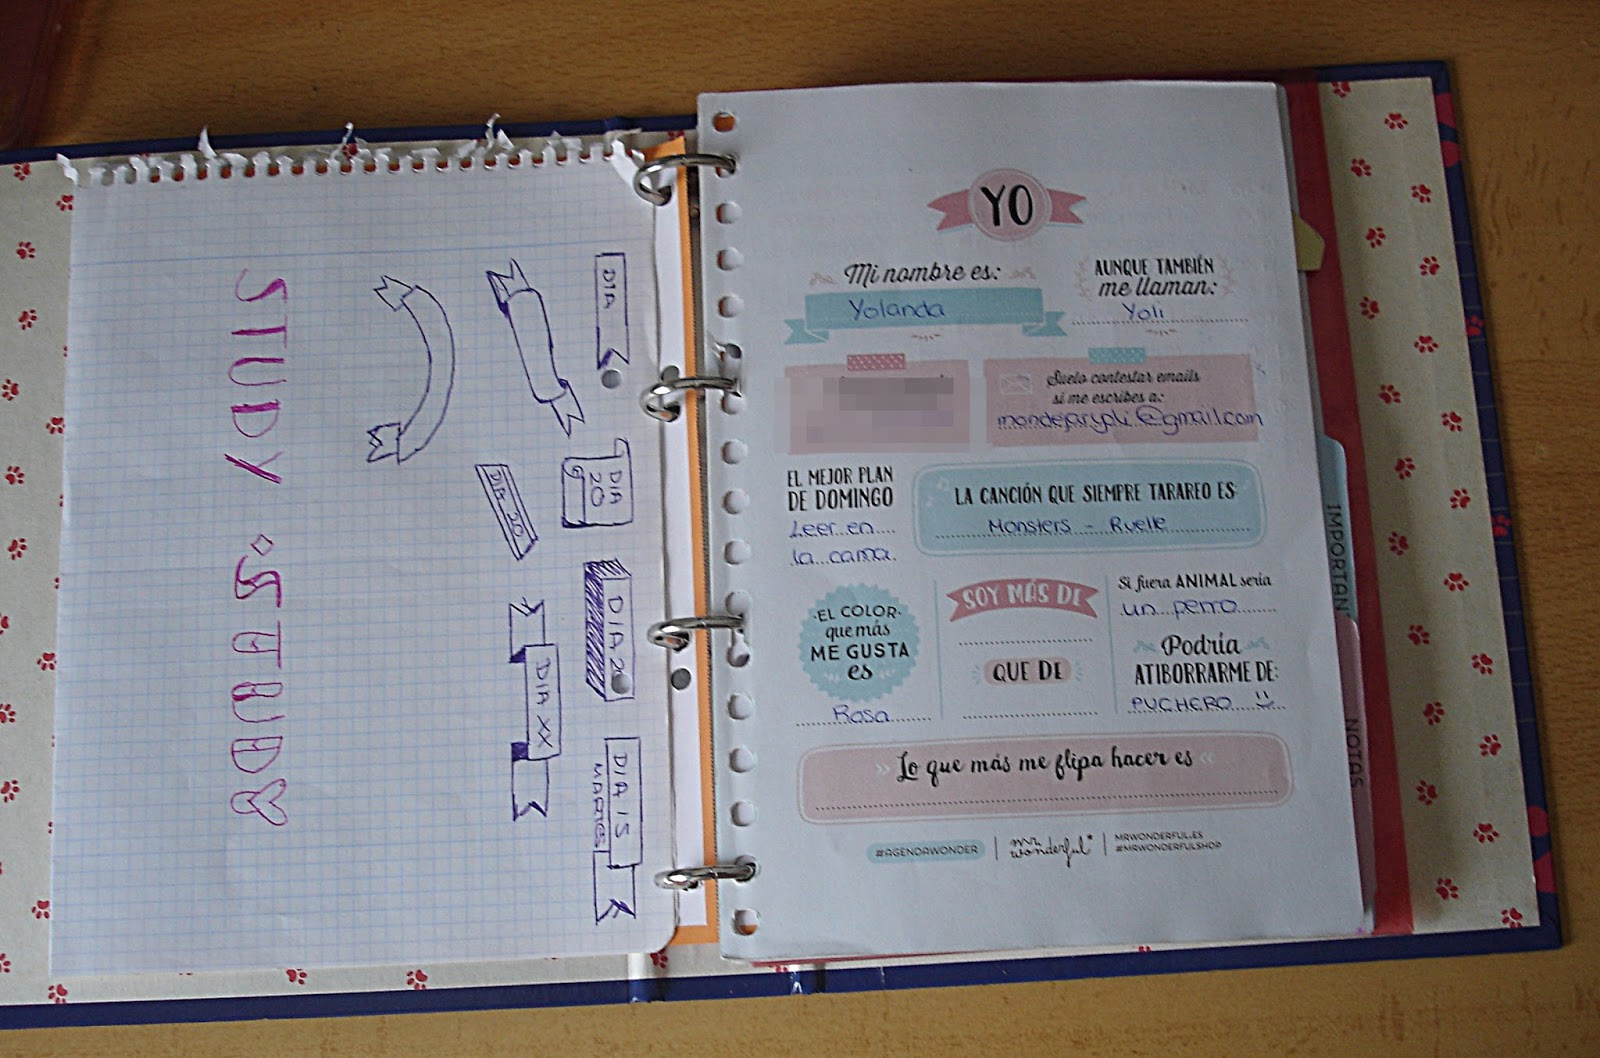 STUDY • STUDY
DIA
DIA
20
DIA 20
DIA 20
DIA XX
DIA 15
MARTES
YO
Mi nombre es:
Yolanda
AUNQUE TAMBIÉN
me llaman:
Yoli
Suelo contestar emails
si me escribes a:
mondejaryoli@gmail.com
EL MEJOR PLAN
DE DOMINGO
Leer en
la cama
LA CANCIÓN QUE SIEMPRE TARAREO ES:
Monsters - Ruelle
·EL COLOR·
que más
ME GUSTA
es
Rosa
SOY MÁS DE
QUE DE
Si fuera ANIMAL sería
un perro
Podría
ATIBORRARME DE:
PUCHERO
Lo que más me flipa hacer es
#AGENDAWONDER
mr.
wonderful*
MRWONDERFUL.ES
#MRWONDERFULSHOP
IMPORTAN
NOTAS